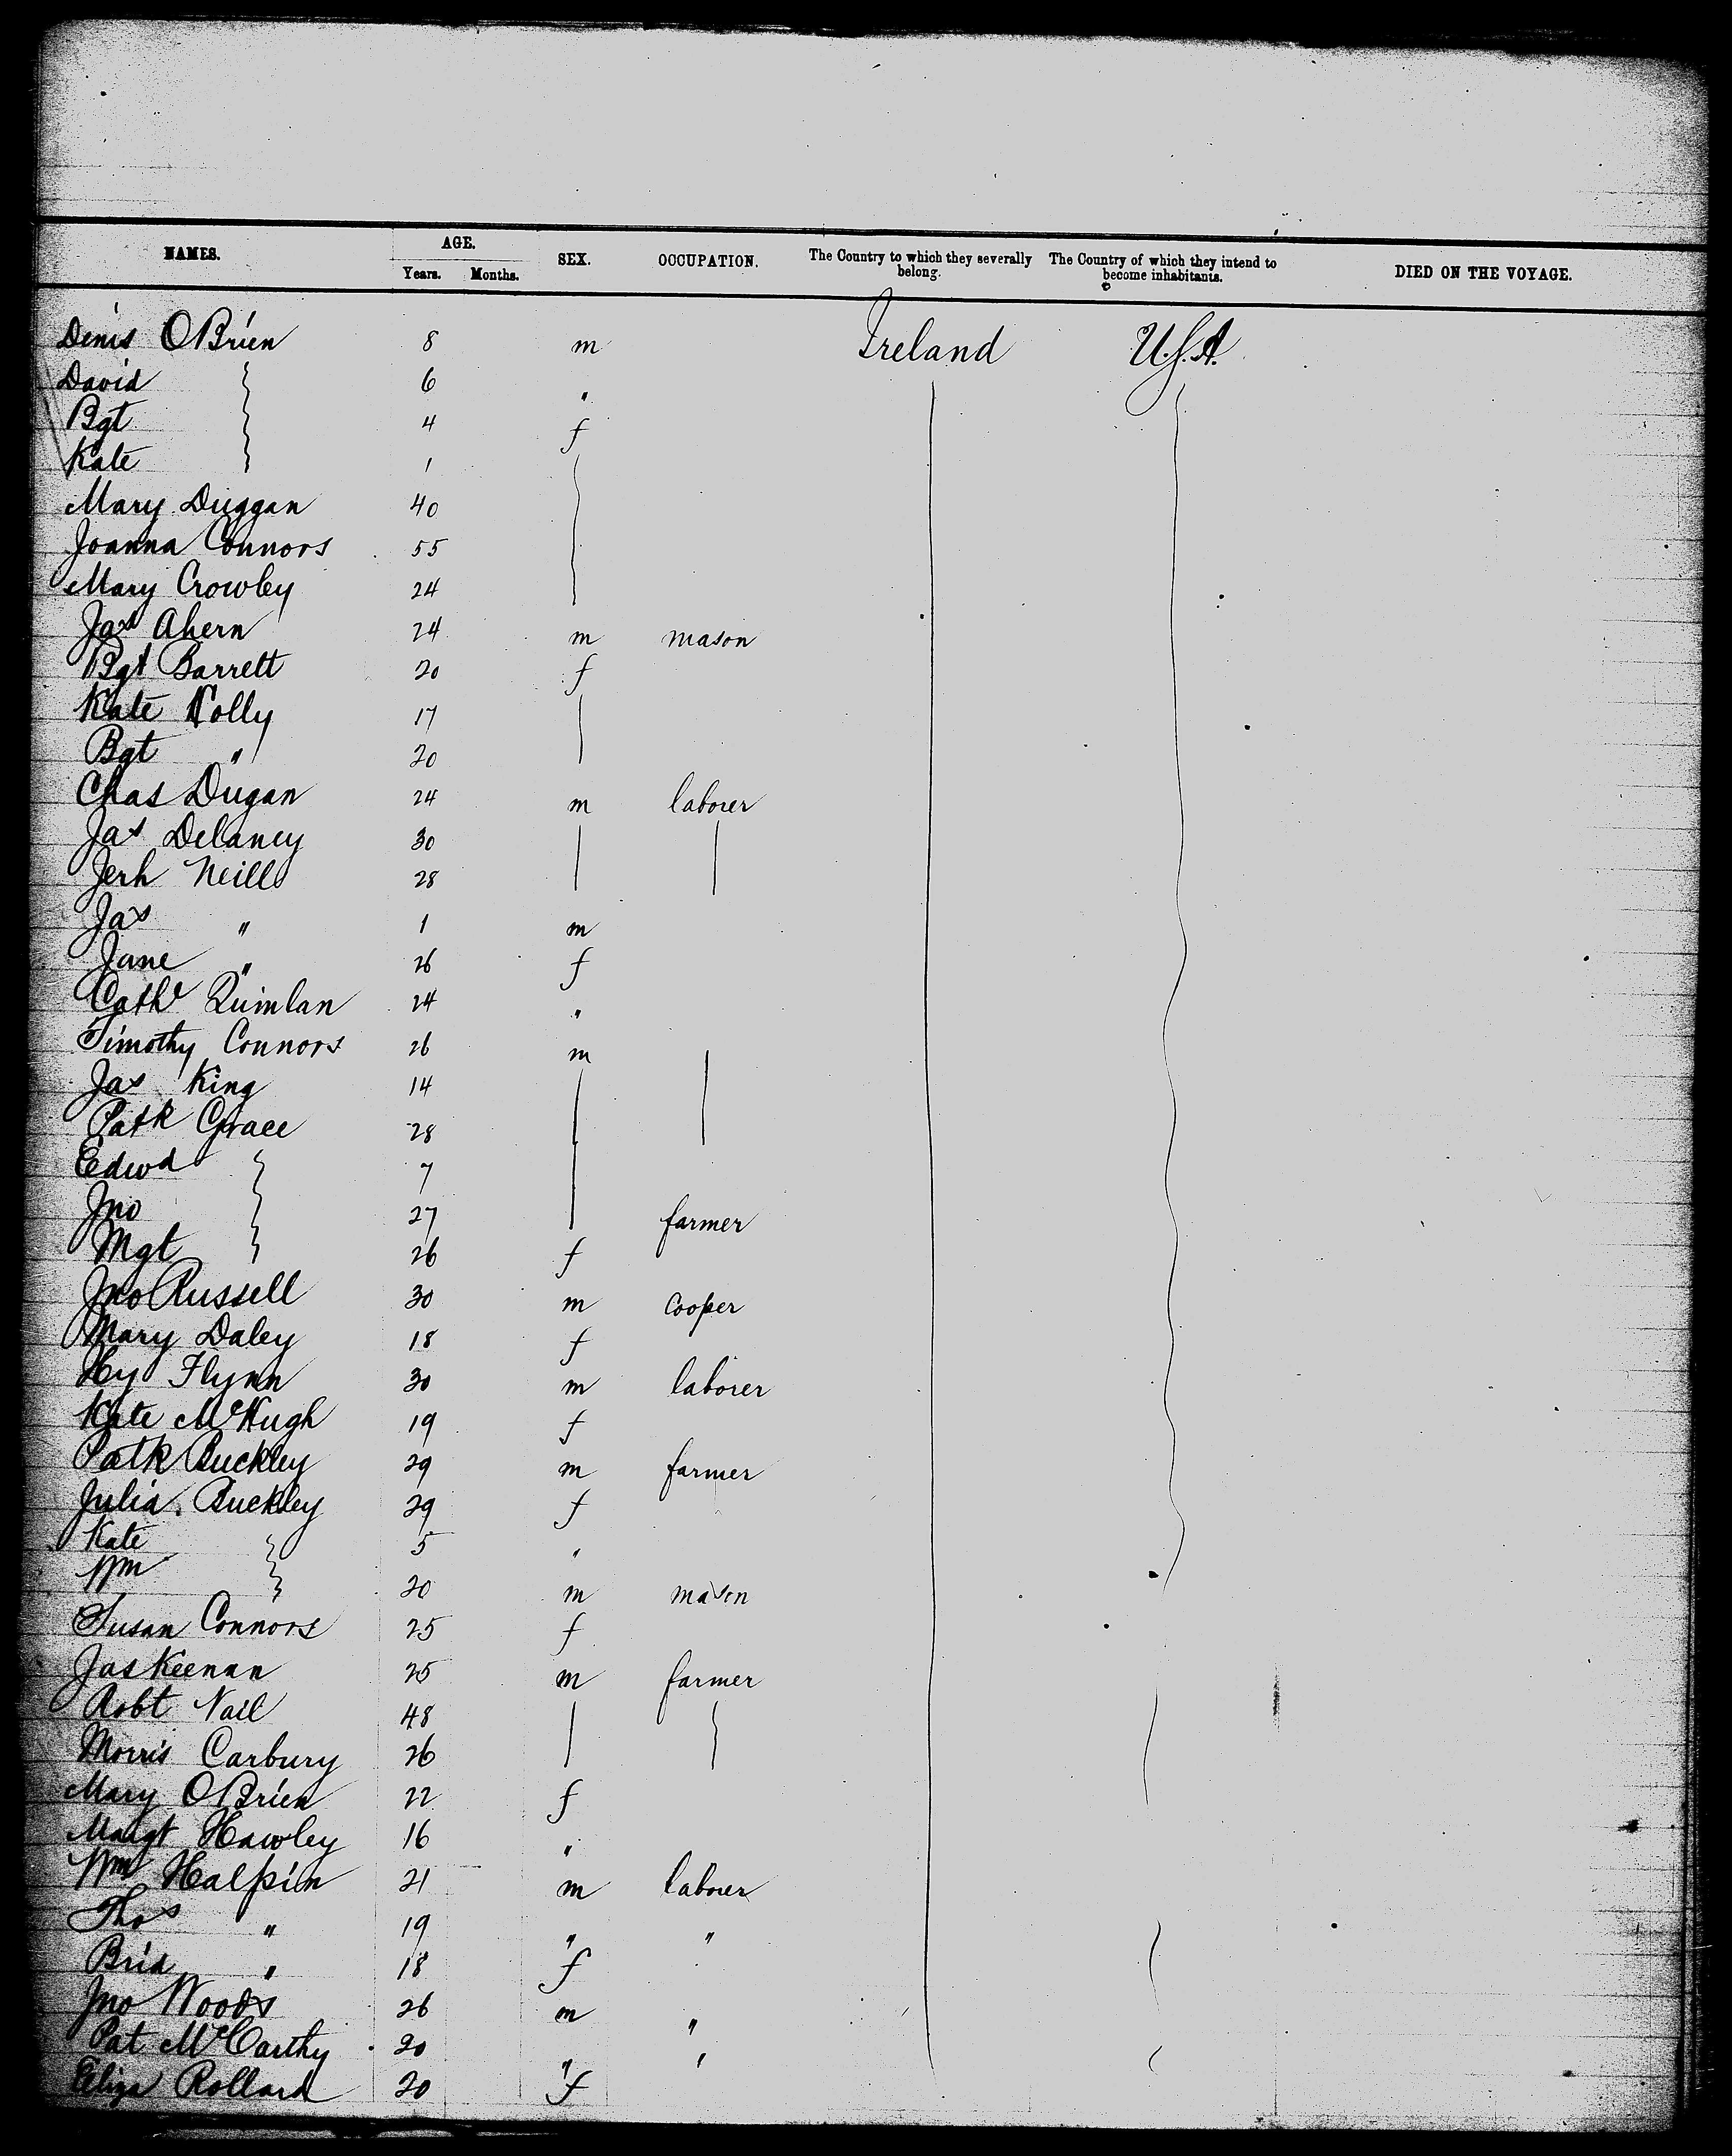 NAMES. AGE. SEX. OCCUPATION. The Country to which they severally belong. The Country of which they intend to become inhabitants. DIED ON THE VOYAGE.
Years. Months.
Denis OBrien 8 m Ireland U.S.A.
David 6 "
Bgt 4 f
Kate 1
Mary Duggan 40
Joanna Connors 55
Mary Crowley 24
Jas Ahern 24 m mason
Bgt Barrett 20 f
Kate Nolly 17
Bgt " 20
Chas Dugan 24 m laborer
Jas Delaney 30
Jerh Neill 28
Jas " 1 m
Jane " 26 f
Cathe Quinlan 24 "
Timothy Connors 26 m
Jas King 14
Patk Grace 28
Edwd 7
Jno 27 farmer
Mgt 26 f
Jno Russell 30 m cooper
Mary Daley 18 f
Hy Flynn 30 m laborer
Kate McHugh 19 f
Patk Buckley 29 m farmer
Julia Buckley 29 f
Kate 5 "
Wm 20 m mason
Susan Connors 25 f
Jas Keenan 25 m farmer
Robt Nail 48
Morris Carbury 26
Mary OBrien 22 f
Margt Hawley 16 "
Wm Halpin 21 m laborer
Thos " 19 " "
Brid " 18 f
Jno Woods 26 m "
Pat McCarthy 20 " "
Eliza Rollard 20 f